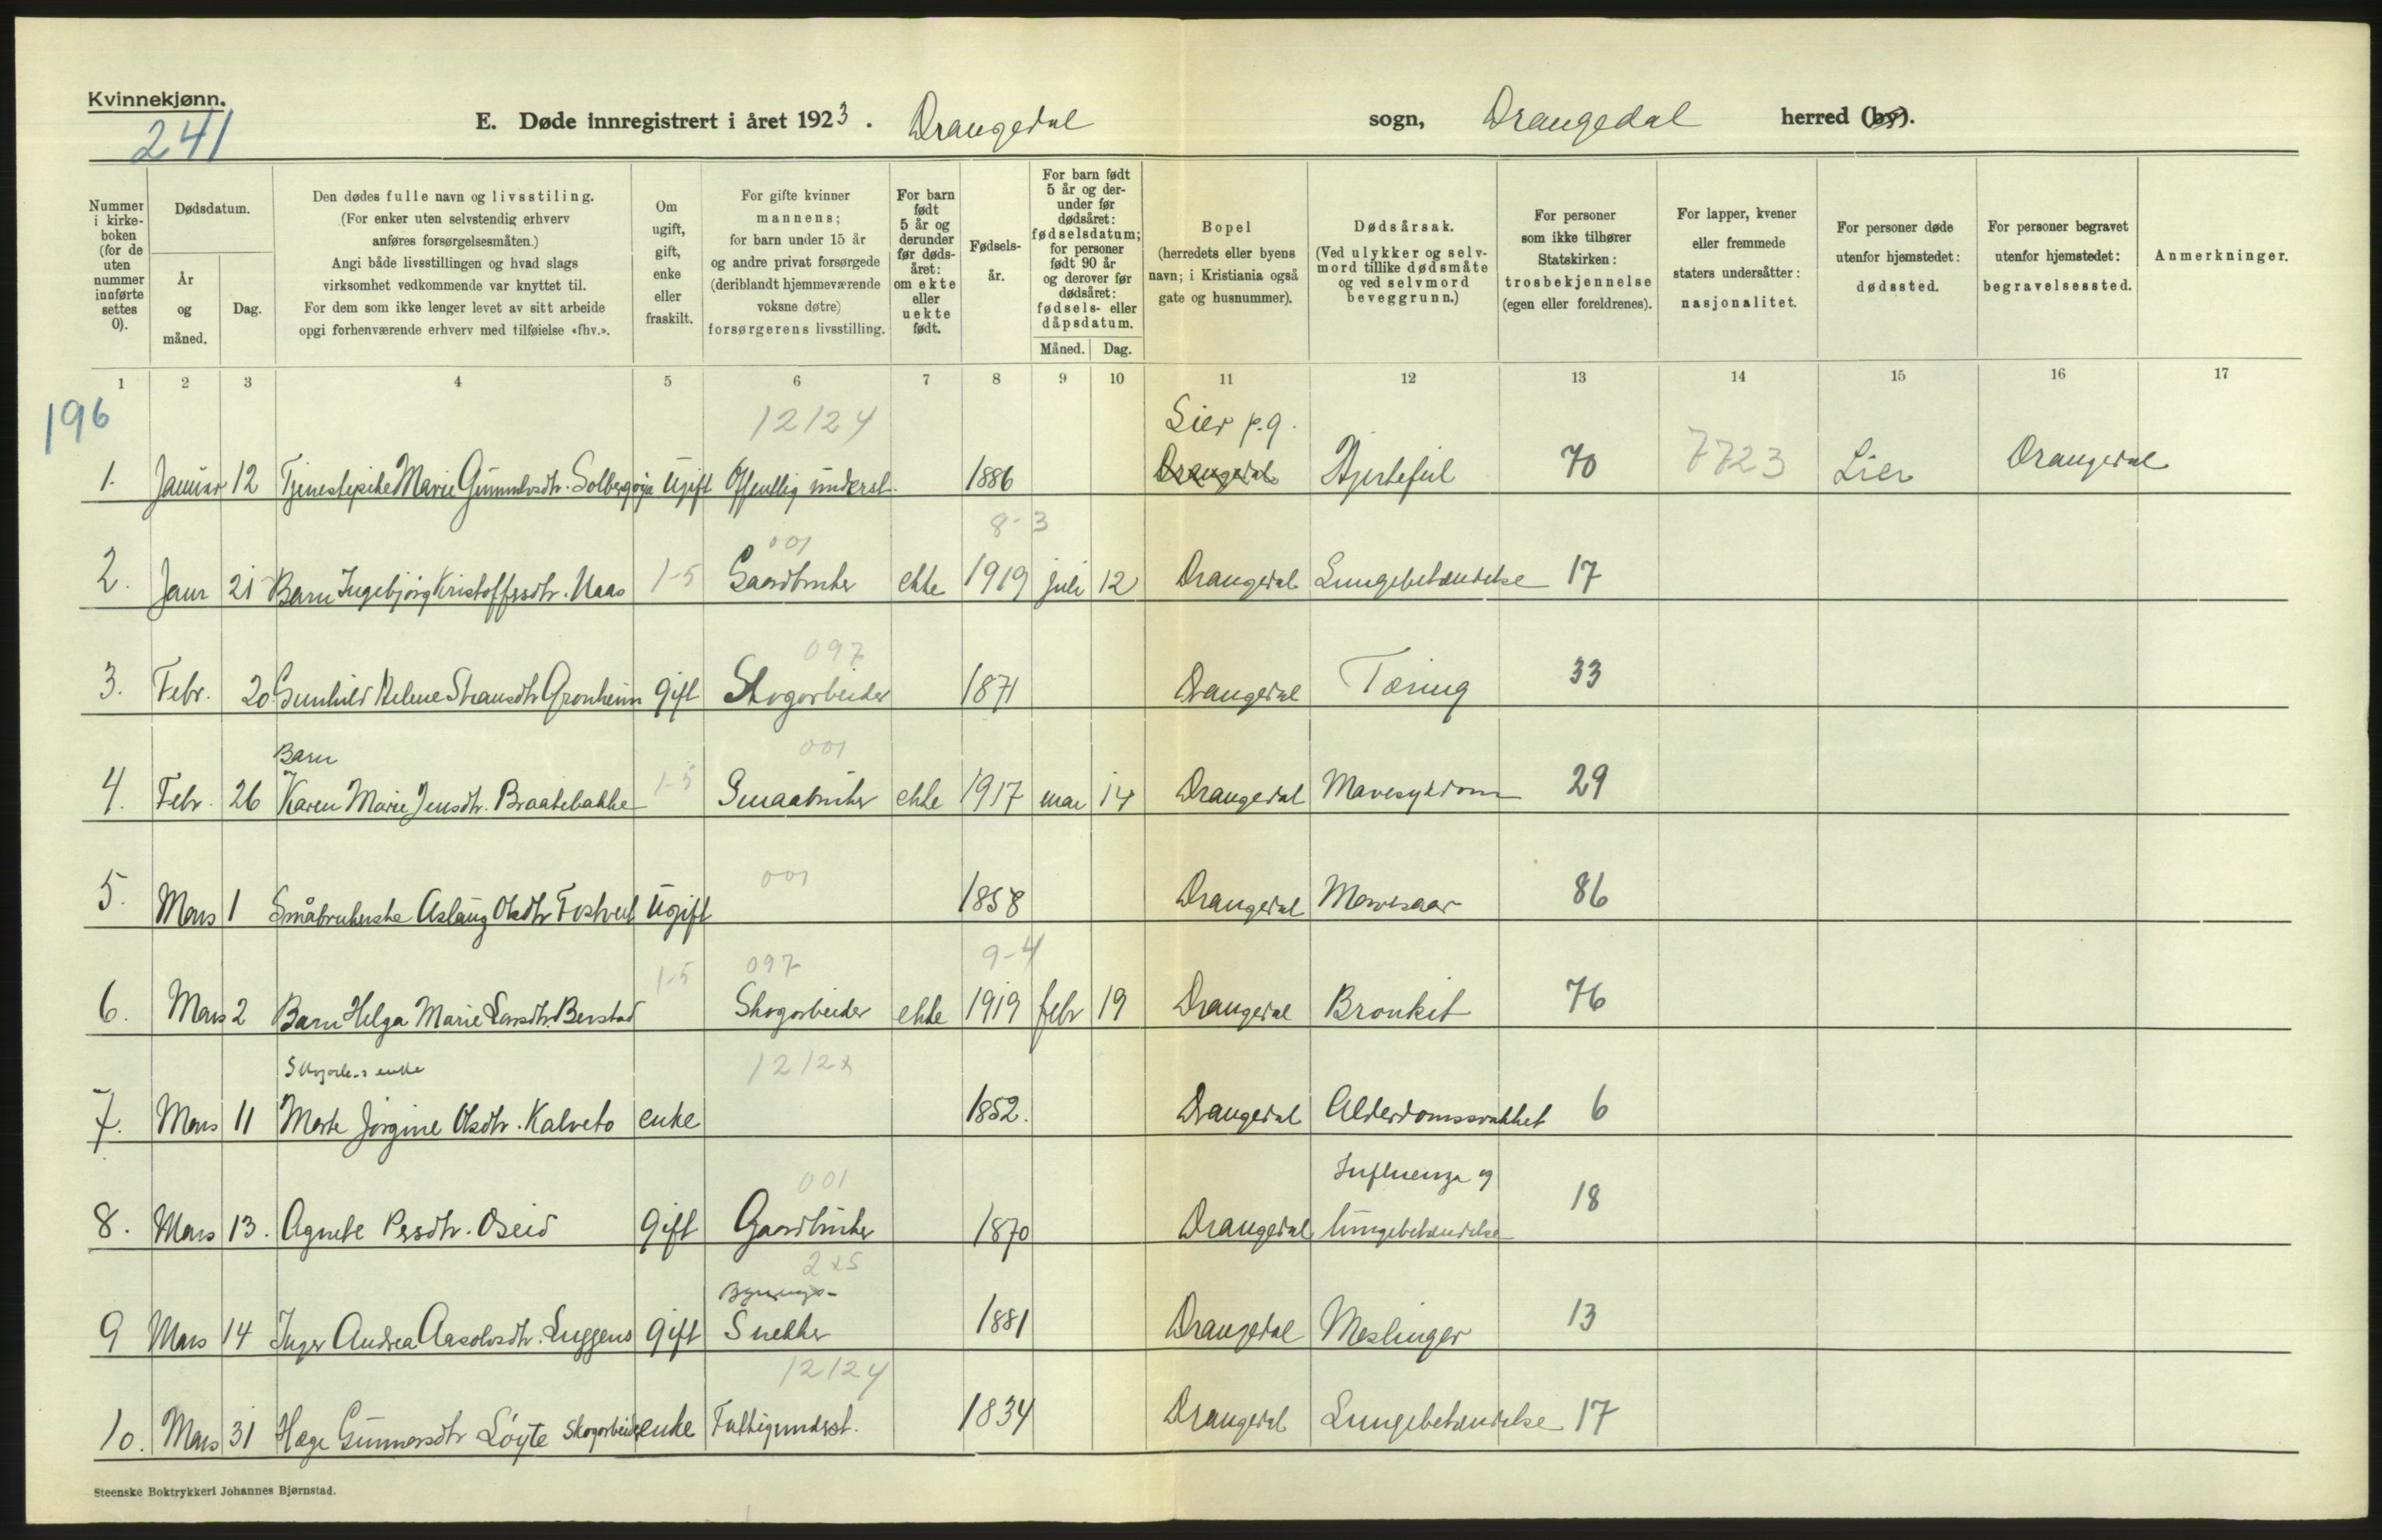 Kvinnekjønn.
241
E. Døde innregistrert i året 1923. Drangedal sogn, Drangedal herred (by).
Nummer i kirke-boken (for de uten nummer innførte settes 0).
Dødsdatum.
År og måned.
Dag.
Den dødes fulle navn og livsstiling.
(For enker uten selvstendig erhverv
anføres forsørgelsesmåten.)
Angi både livsstillingen og hvad slags
virksomhet vedkommende var knyttet til.
For dem som ikke lenger levet av sitt arbeide
opgi forhenværende erhverv med tilføielse «fhv.».
Om ugift, gift, enke eller fraskilt.
For gifte kvinner
mannens;
for barn under 15 år
og andre privat forsørgede
(deriblandt hjemmeværende
voksne døtre)
forsørgerens livsstilling.
For barn født 5 år og derunder før døds-året: om ekte eller uekte født.
Fødsels-år.
For barn født 5 år og der-under før dødsåret: fødselsdatum; for personer født 90 år og derover før dødsåret: fødsels- eller dåpsdatum.
Måned. Dag.
Bopel
(herredets eller byens
navn; i Kristiania også
gate og husnummer).
Dødsårsak.
(Ved ulykker og selv-
mord tillike dødsmåte
og ved selvmord
beveggrunn.)
For personer
som ikke tilhører
Statskirken:
trosbekjennelse
(egen eller foreldrenes).
For lapper, kvener
eller fremmede
staters undersåtter:
nasjonalitet.
For personer døde
utenfor hjemstedet:
dødssted.
For personer begravet
utenfor hjemstedet:
begravelsessted.
Anmerkninger.
1 2 3 4 5 6 7 8 9 10 11 12 13 14 15 16 17
196
12124 Lier p.g.
1. Januar 12 Tjenestepike Marie Gunnulvsdtr. Solbergøya Ugift Offentlig underst. 1886 Drangedal Hjertefeil 70 7723 Lier Drangedal
001 8-3
2. Janr 21 Barn Ingebjørg Kristoffersdtr. Naas 1-5 Gaardbruker ekte 1919 juli 12 Drangedal Lungebetændelse 17
097
3. Febr. 20 Gunhild Helene Steansdtr Grønheim gift Skogarbeider 1871 Drangedal Tæring 33
Barn 001
4. Febr. 26 Karen Marie Jensdtr. Braatebakke 1-5 Smaabruker ekte 1917 mai 14 Drangedal Mavesykdom 29
001
5. Mars 1 Småbrukerske Aslaug Olsdtr Tostveit Ugift 1858 Drangedal Mavesaar 86
1-5 097 9-4
6. Mars 2 Barn Helga Marie Larsdtr. Berstad Skogarbeider ekte 1919 febr 19 Drangedal Bronkit 76
Skogarb.s enke 1212x
7. Mars 11 Marte Jørgine Olsdtr. Kalveto enke 1852. Drangedal Alderdomssvakhet 6
001 Influenza og
8. Mars 13. Agnete Persdtr. Oseid gift Gaardbruker 1870 Drangedal lungebetændelse 18
2x5
Bygnings-
9 Mars 14 Inger Andrea Aasolvsdtr. Luggens gift Snekker 1881 Drangedal Meslinger 13
12124
10. Mars 31 Hæge Gunnarsdtr Løyte Skogarbeider enke Fattigunderst. 1834 Drangedal Lungebetændelse 17
Steenske Boktrykkeri Johannes Bjørnstad.